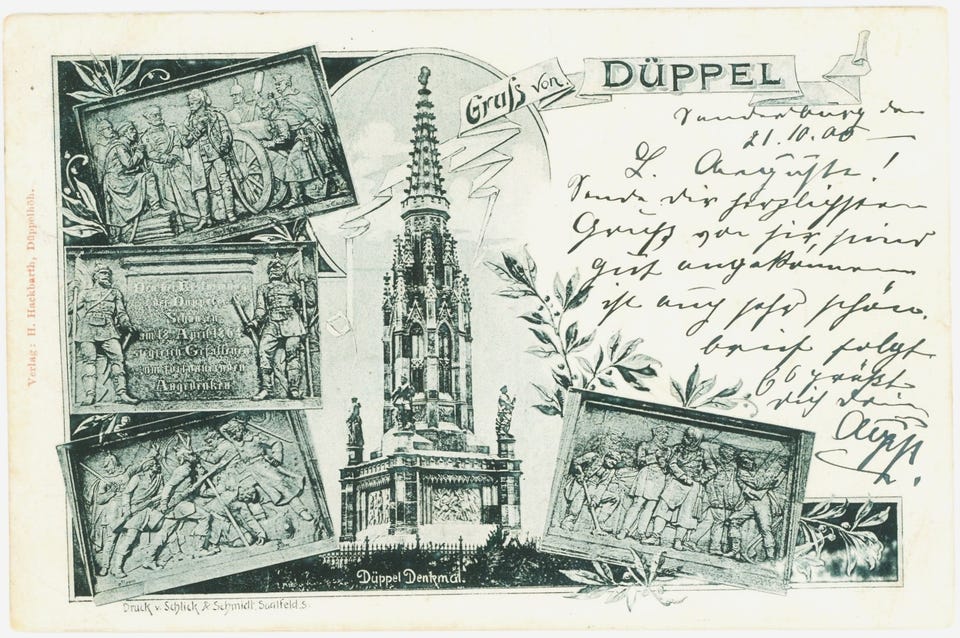 Gruß von
DÜPPEL
Sonderburg den
21.10.00
L. Auguste!
Sende dir herzlichsten
Gruß von hier, sind
gut angekommen
ist auch sehr schön.
brief folgt
Es grüßt
dich dein
August
Verlag: H. Hackbarth, Düppelhöh.
Den bei Erstürmung
der Düppeler
Schanzen
am 18. April 1864
siegreich Gefallenen
zum
Angedenken
Düppel Denkmal.
Druck v. Schlick & Schmidt, Saalfeld S.